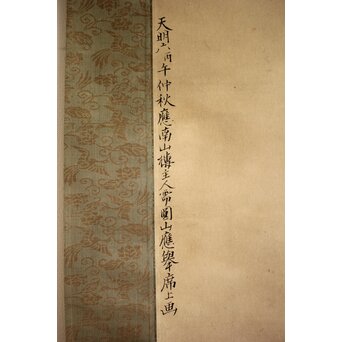 天明六丙午仲秋應南山樓主人需圓山應擧席上画